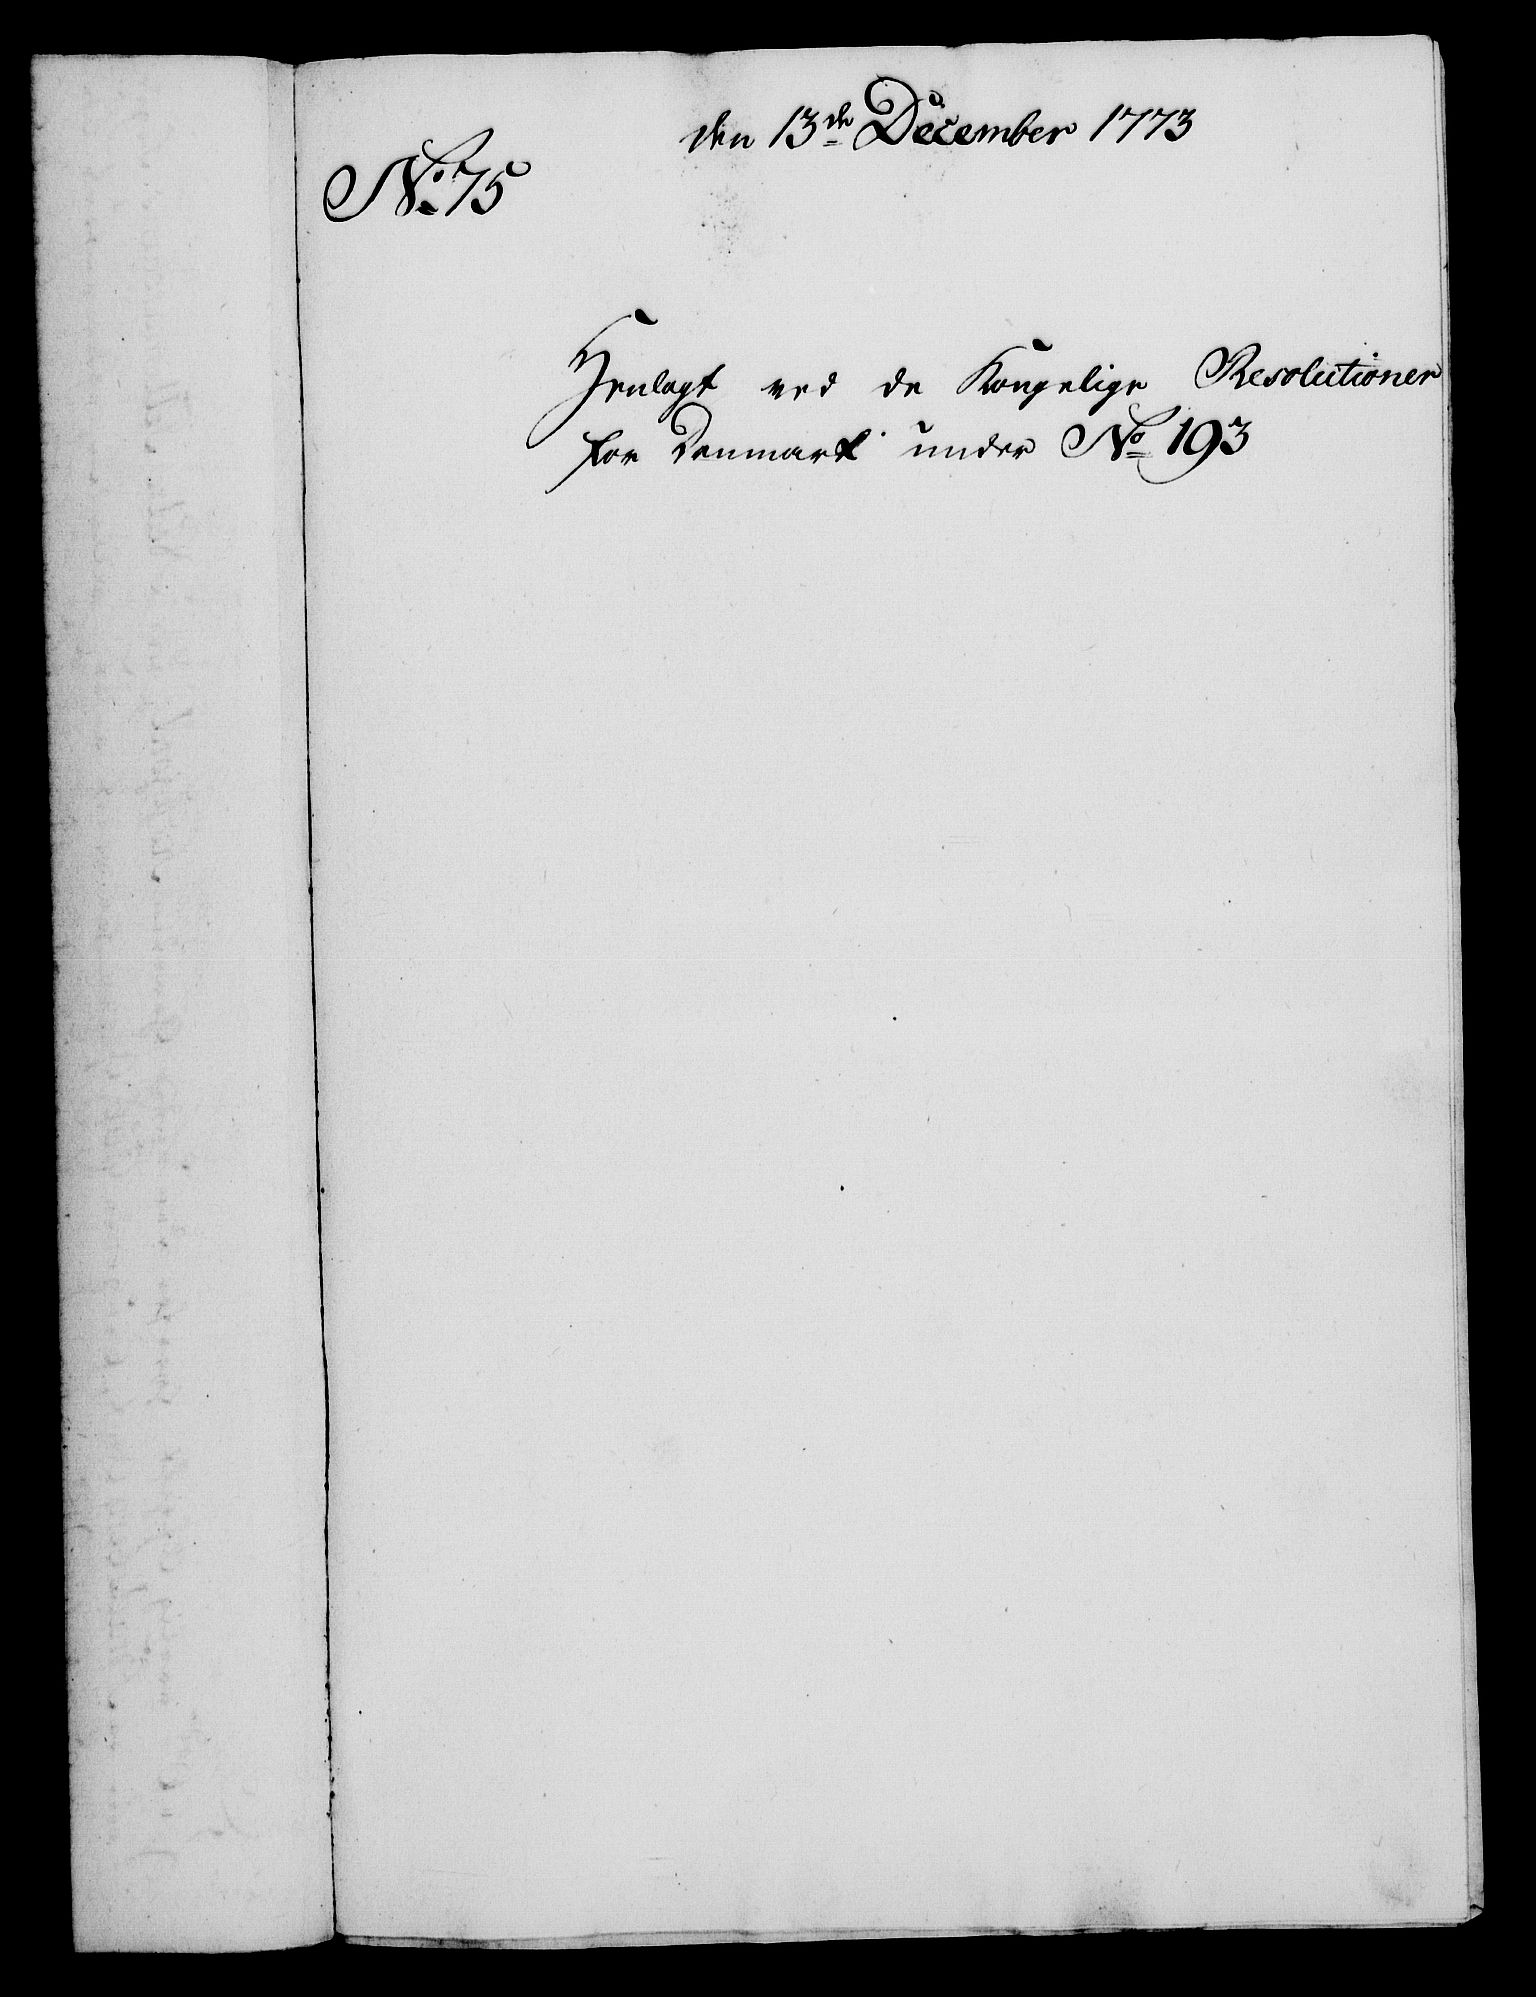 den 13de December 1773
No. 75
Henlagt ved de Kongelige Resolutioner
for Danmark under No 193